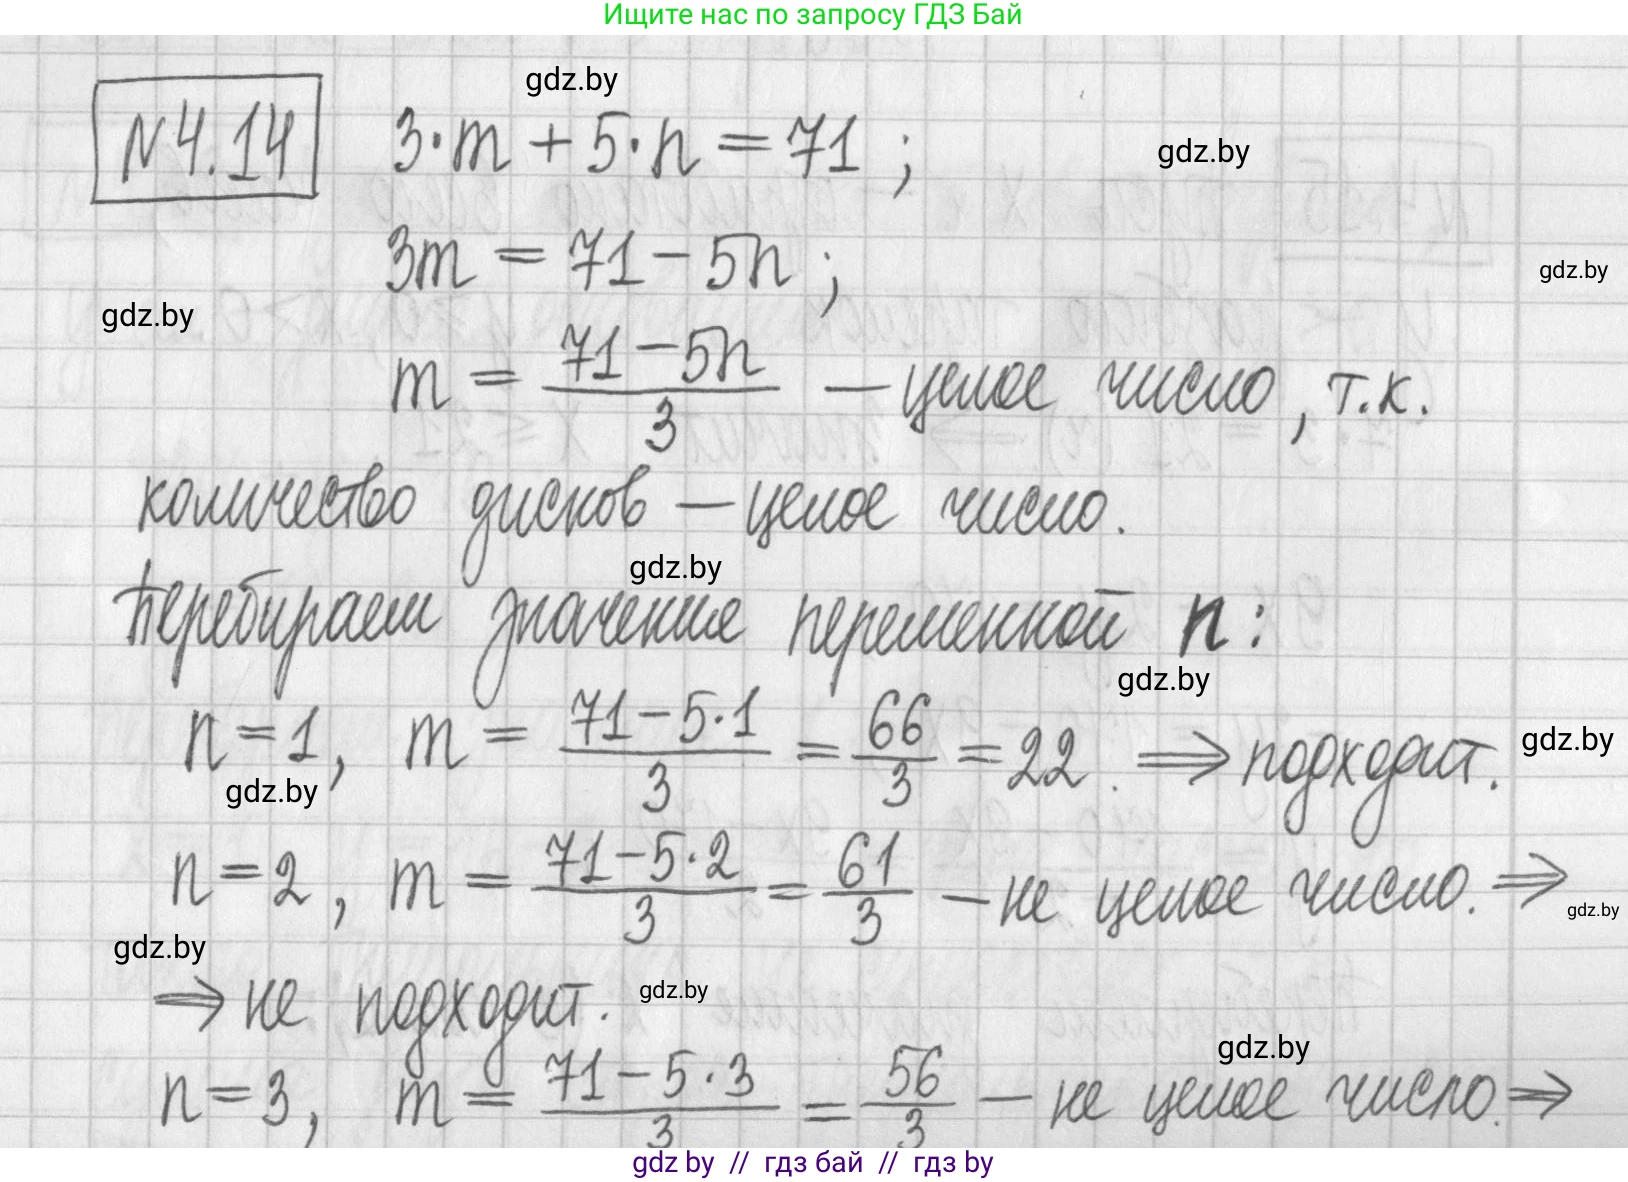 Ищите нас по запросу ГДЗ Бай
gdz.by
№4.14 3·m + 5·n = 71 ;
gdz.by
3m = 71 - 5n ;
gdz.by
gdz.by
m = (71 - 5n)/3 — целое число, т.к.
количество дисков — целое число.
gdz.by
Перебираем значение переменной n:
gdz.by
n = 1, m = (71 - 5·1)/3 = 66/3 = 22. ⇒ подходит.
gdz.by
gdz.by
n = 2, m = (71 - 5·2)/3 = 61/3 — не целое число. ⇒
gdz.by
gdz.by
⇒ не подходит.
gdz.by
gdz.by
n = 3, m = (71 - 5·3)/3 = 56/3 — не целое число. ⇒
gdz by // гдз бай // гдз by